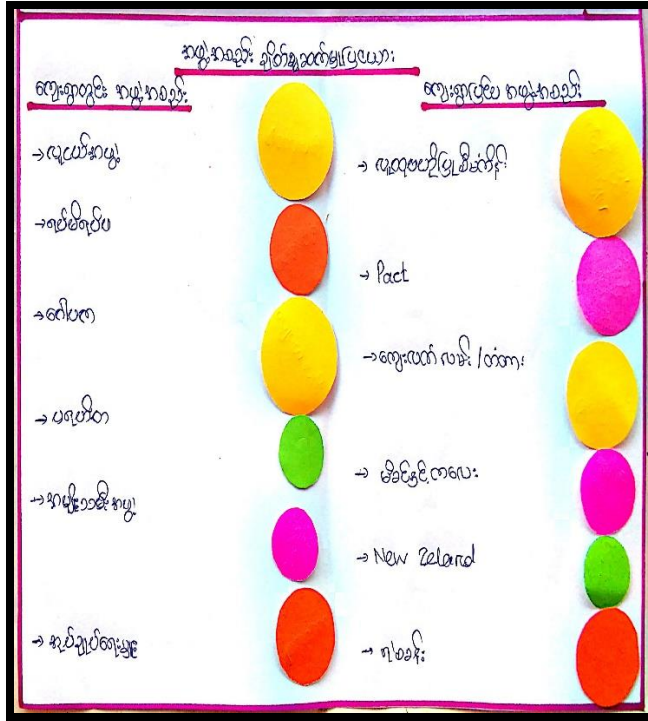 အဖွဲ့အစည်း ချိတ်ဆက်မှုပြယေား
ကျေးရွာတွင်း အဖွဲ့အစည်း
→လူငယ်အဖွဲ့
→ရပ်မိရပ်ဖ
→ဂေါပက
→ပရဟိတ
→အမျိုးသမီးအဖွဲ့
→အုပ်ချုပ်ရေးမှူး
ကျေးရွာပြင်ပ အဖွဲ့အစည်း
→ လူထုဗဟိုပြုစီမံကိန်း
→ Pact
→ကျေးလက် လမ်း /တံတား
→ မိခင်နှင့်ကလေး
→ New Zeland
→ ရဲစခန်း